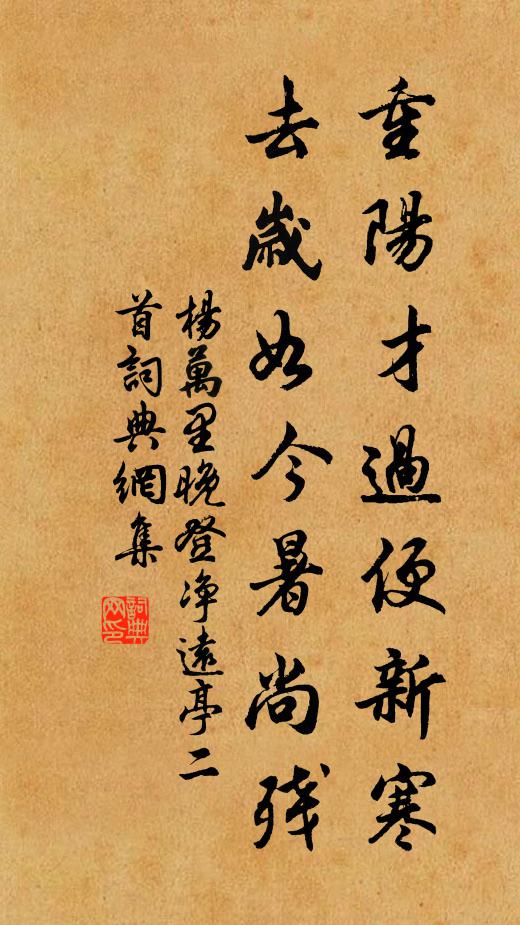 重陽才過便新寒
去歲如今暑尚殘
楊萬里晚登净遠亭二
首詞典網集
詞典
网印